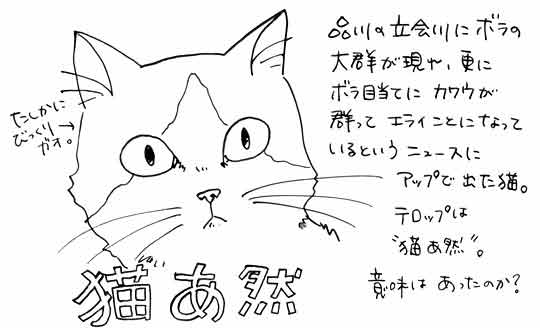 品川の立会川にボラの
大群が現れ、更に
ボラ目当てにカワウが
群ってエライことになって
いるというニュースに
アップで出た猫。
テロップは
“猫あ然”。
意味はあったのか?
たしかに
びっくり
ガオ。
猫あ然